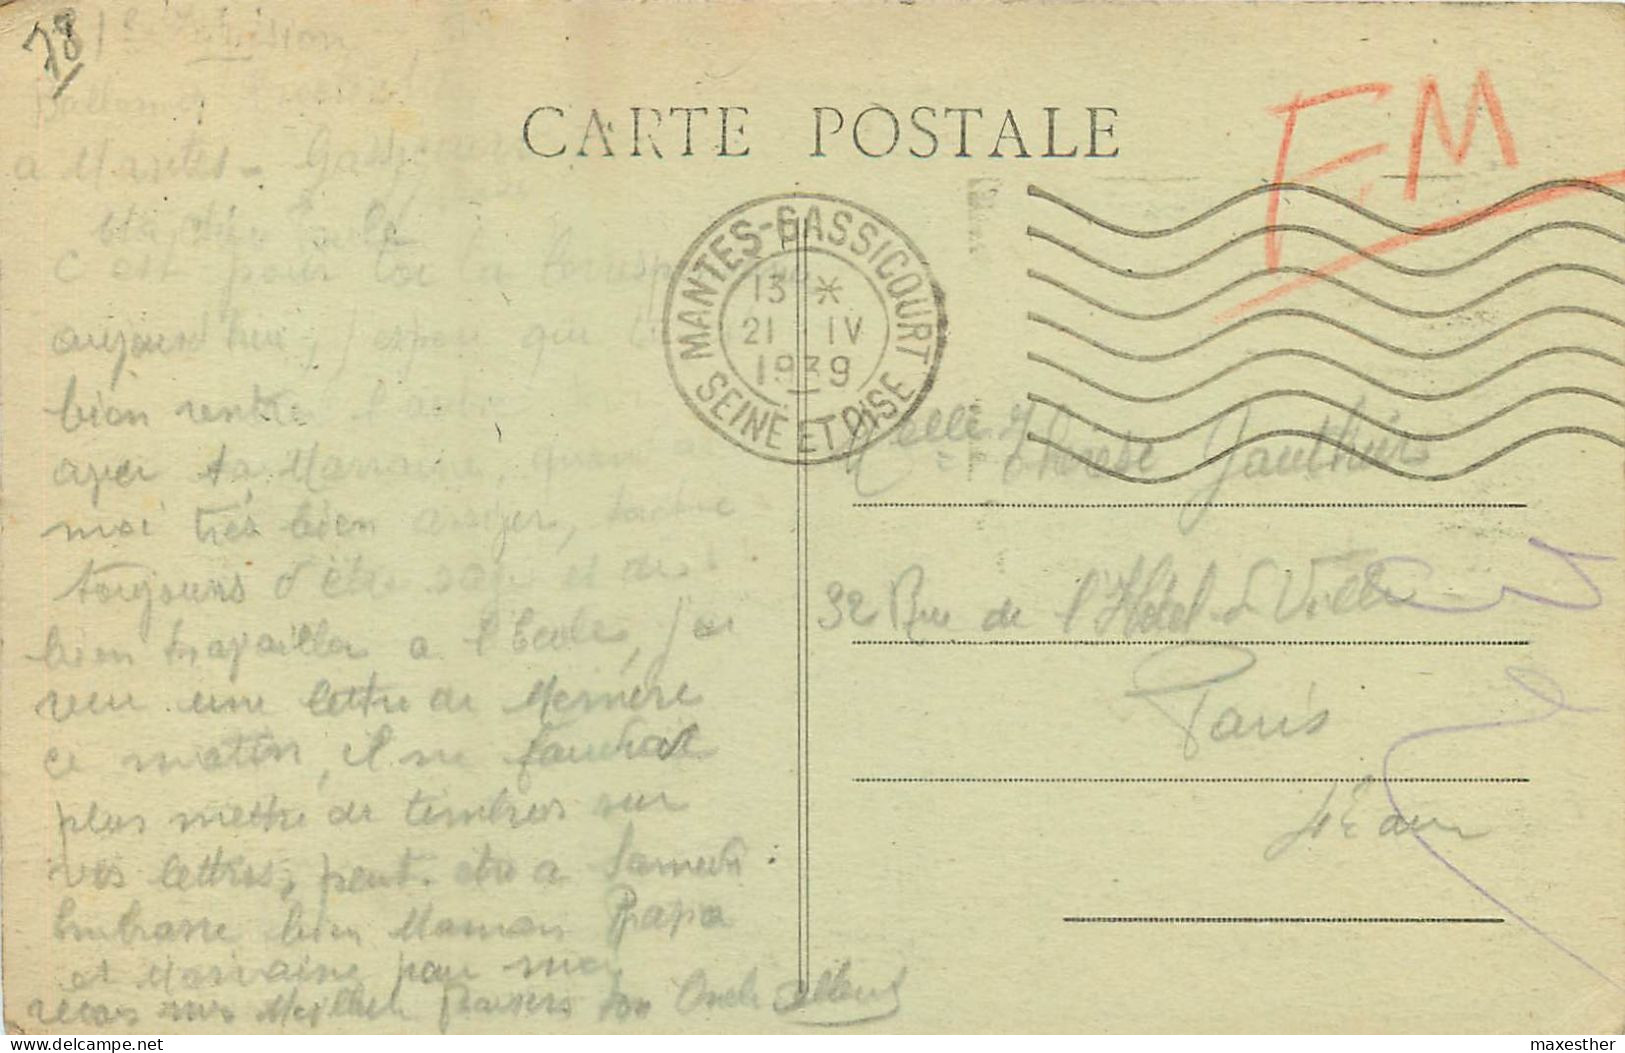 78
CARTE POSTALE
FM
MANTES-GASSICOURT
13 *
21 IV
1939
SEINE ET OISE
à Mantes - Gassicourt
C'est pour toi la
aujourd'hui, j'espere que
bien rentré
avec ta Marraine, quant à
moi très bien arrivé, tache
toujours d'être sage et de
bien travailler à l'Ecole, j'ai
reçu une lettre de Memère
ce matin, il ne faudrait
plus mettre de timbres sur
vos lettres, peut-etre a Samedi
Embrasse bien Maman Papa
et Marraine pour moi
recois mes Meilleurs Baisers ton Oncle Albert
Melle Thérèse Gauthier
32 Rue de l'Hôtel de Ville
Paris
4E arr
delcampe.net
maxesther